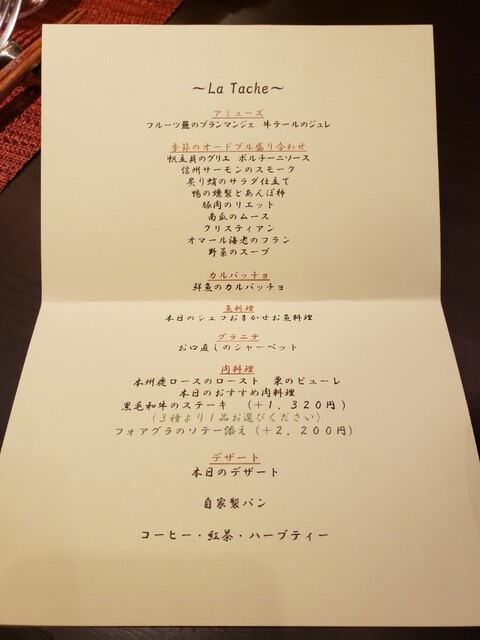 ～La Tache～
アミューズ
フルーツ蕪のブランマンジェ　牛テールのジュレ
季節のオードブル盛り合わせ
帆立貝のグリエ　ポルチーニソース
信州サーモンのスモーク
炙り蛸のサラダ仕立て
鴨の燻製とあんぽ柿
豚肉のリエット
南瓜のムース
クリスティアン
オマール海老のフラン
野菜のスープ
カルパッチョ
鮮魚のカルパッチョ
魚料理
本日のシェフおまかせお魚料理
グラニテ
お口直しのシャーベット
肉料理
本州鹿ロースのロースト　栗のピューレ
本日のおすすめ肉料理
黒毛和牛のステーキ　（＋１，３２０円）
（３種より１品お選びください）
フォアグラのソテー添え（＋２，２００円）
デザート
本日のデザート
自家製パン
コーヒー・紅茶・ハーブティー